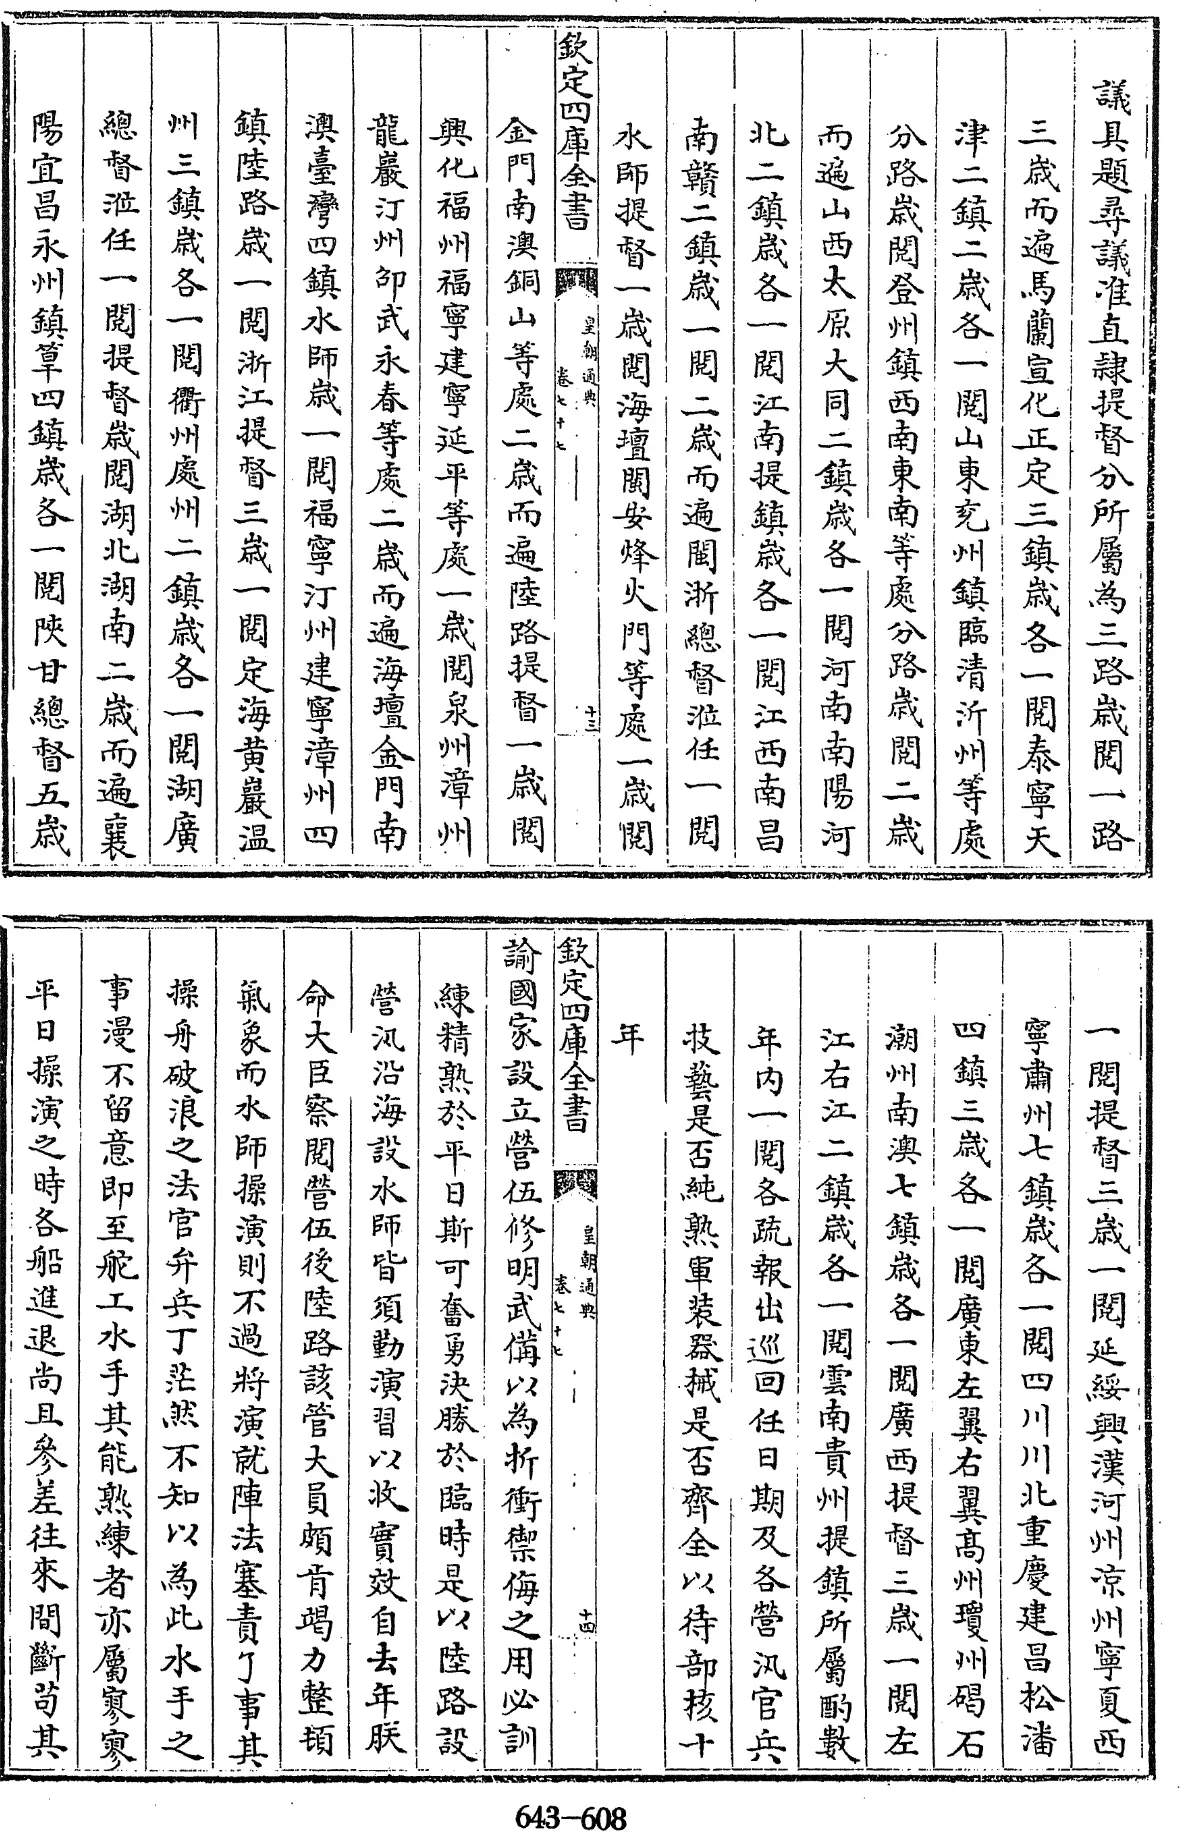 議具題尋議准直隷提督分所屬為三路歲閱一路
三歲而遍馬蘭宣化正定三鎮歲各一閱泰寧天
津二鎮二歲各一閱山東兗州鎮臨清沂州等處
分路歲閱登州鎮西南東南等處分路歲閱二歲
而遍山西太原大同二鎮歲各一閱河南南陽河
北二鎮歲各一閱江南提鎮歲各一閱江西南昌
南贛二鎮歲一閱二歲而遍閩浙總督涖任一閱
水師提督一歲閱海壇閩安烽火門等處一歲閱
欽定四庫全書
皇朝通典
卷七十七
十三
金門南澳銅山等處二歲而遍陸路提督一歲閱
興化福州福寧建寧延平等處一歲閱泉州漳州
龍巖汀州邵武永春等處二歲而遍海壇金門南
澳臺灣四鎮水師歲一閱福寧汀州建寧漳州四
鎮陸路歲一閱浙江提督三歲一閱定海黃巖溫
州三鎮歲各一閱衢州處州二鎮歲各一閱湖廣
總督涖任一閱提督歲閱湖北湖南二歲而遍襄
陽宜昌永州鎮筸四鎮歲各一閱陝甘總督五歲
一閱提督三歲一閱延綏興漢河州涼州寧夏西
寧肅州七鎮歲各一閱四川川北重慶建昌松潘
四鎮三歲各一閱廣東左翼右翼高州瓊州碣石
潮州南澳七鎮歲各一閱廣西提督三歲一閱左
江右江二鎮歲各一閱雲南貴州提鎮所屬酌數
年內一閱各疏報出巡回任日期及各營汛官兵
技藝是否純熟軍裝器械是否齊全以待部核十
年
欽定四庫全書
皇朝通典
卷七十七
十四
諭國家設立營伍修明武備以為折衝禦侮之用必訓
練精熟於平日斯可奮勇決勝於臨時是以陸路設
營汛沿海設水師皆須勤演習以收實效自去年朕
命大臣察閱營伍後陸路該管大員頗肯竭力整頓
氣象而水師操演則不過將演就陣法塞責了事其
操舟破浪之法官弁兵丁茫然不知以為此水手之
事漫不留意即至舵工水手其能熟練者亦屬寥寥
平日操演之時各船進退尚且參差往來間斷苟其
643-608